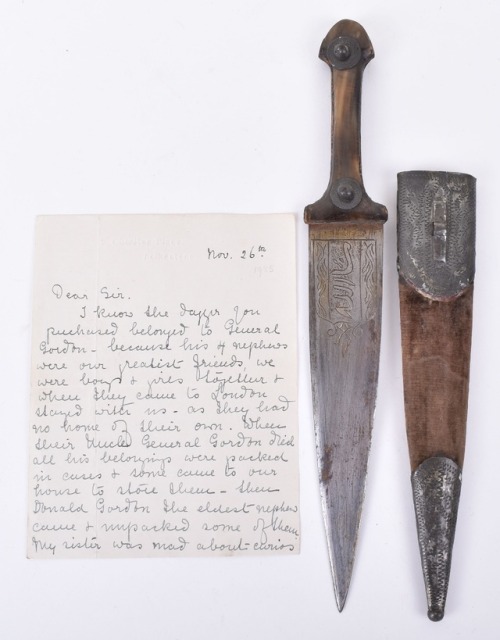 Nov. 26th
Dear Sir.
I know the dagger you
purchased belonged to General
Gordon - because his 4 nephews
were our greatest friends, we
were boys & girls together &
when they came to London
stayed with us - as they had
no home of their own. When
their Uncle General Gordon died
all his belongings were packed
in cases & some came to our
house to store them - then
Donald Gordon the eldest nephew
came & unpacked some of them
My sister was mad about curios